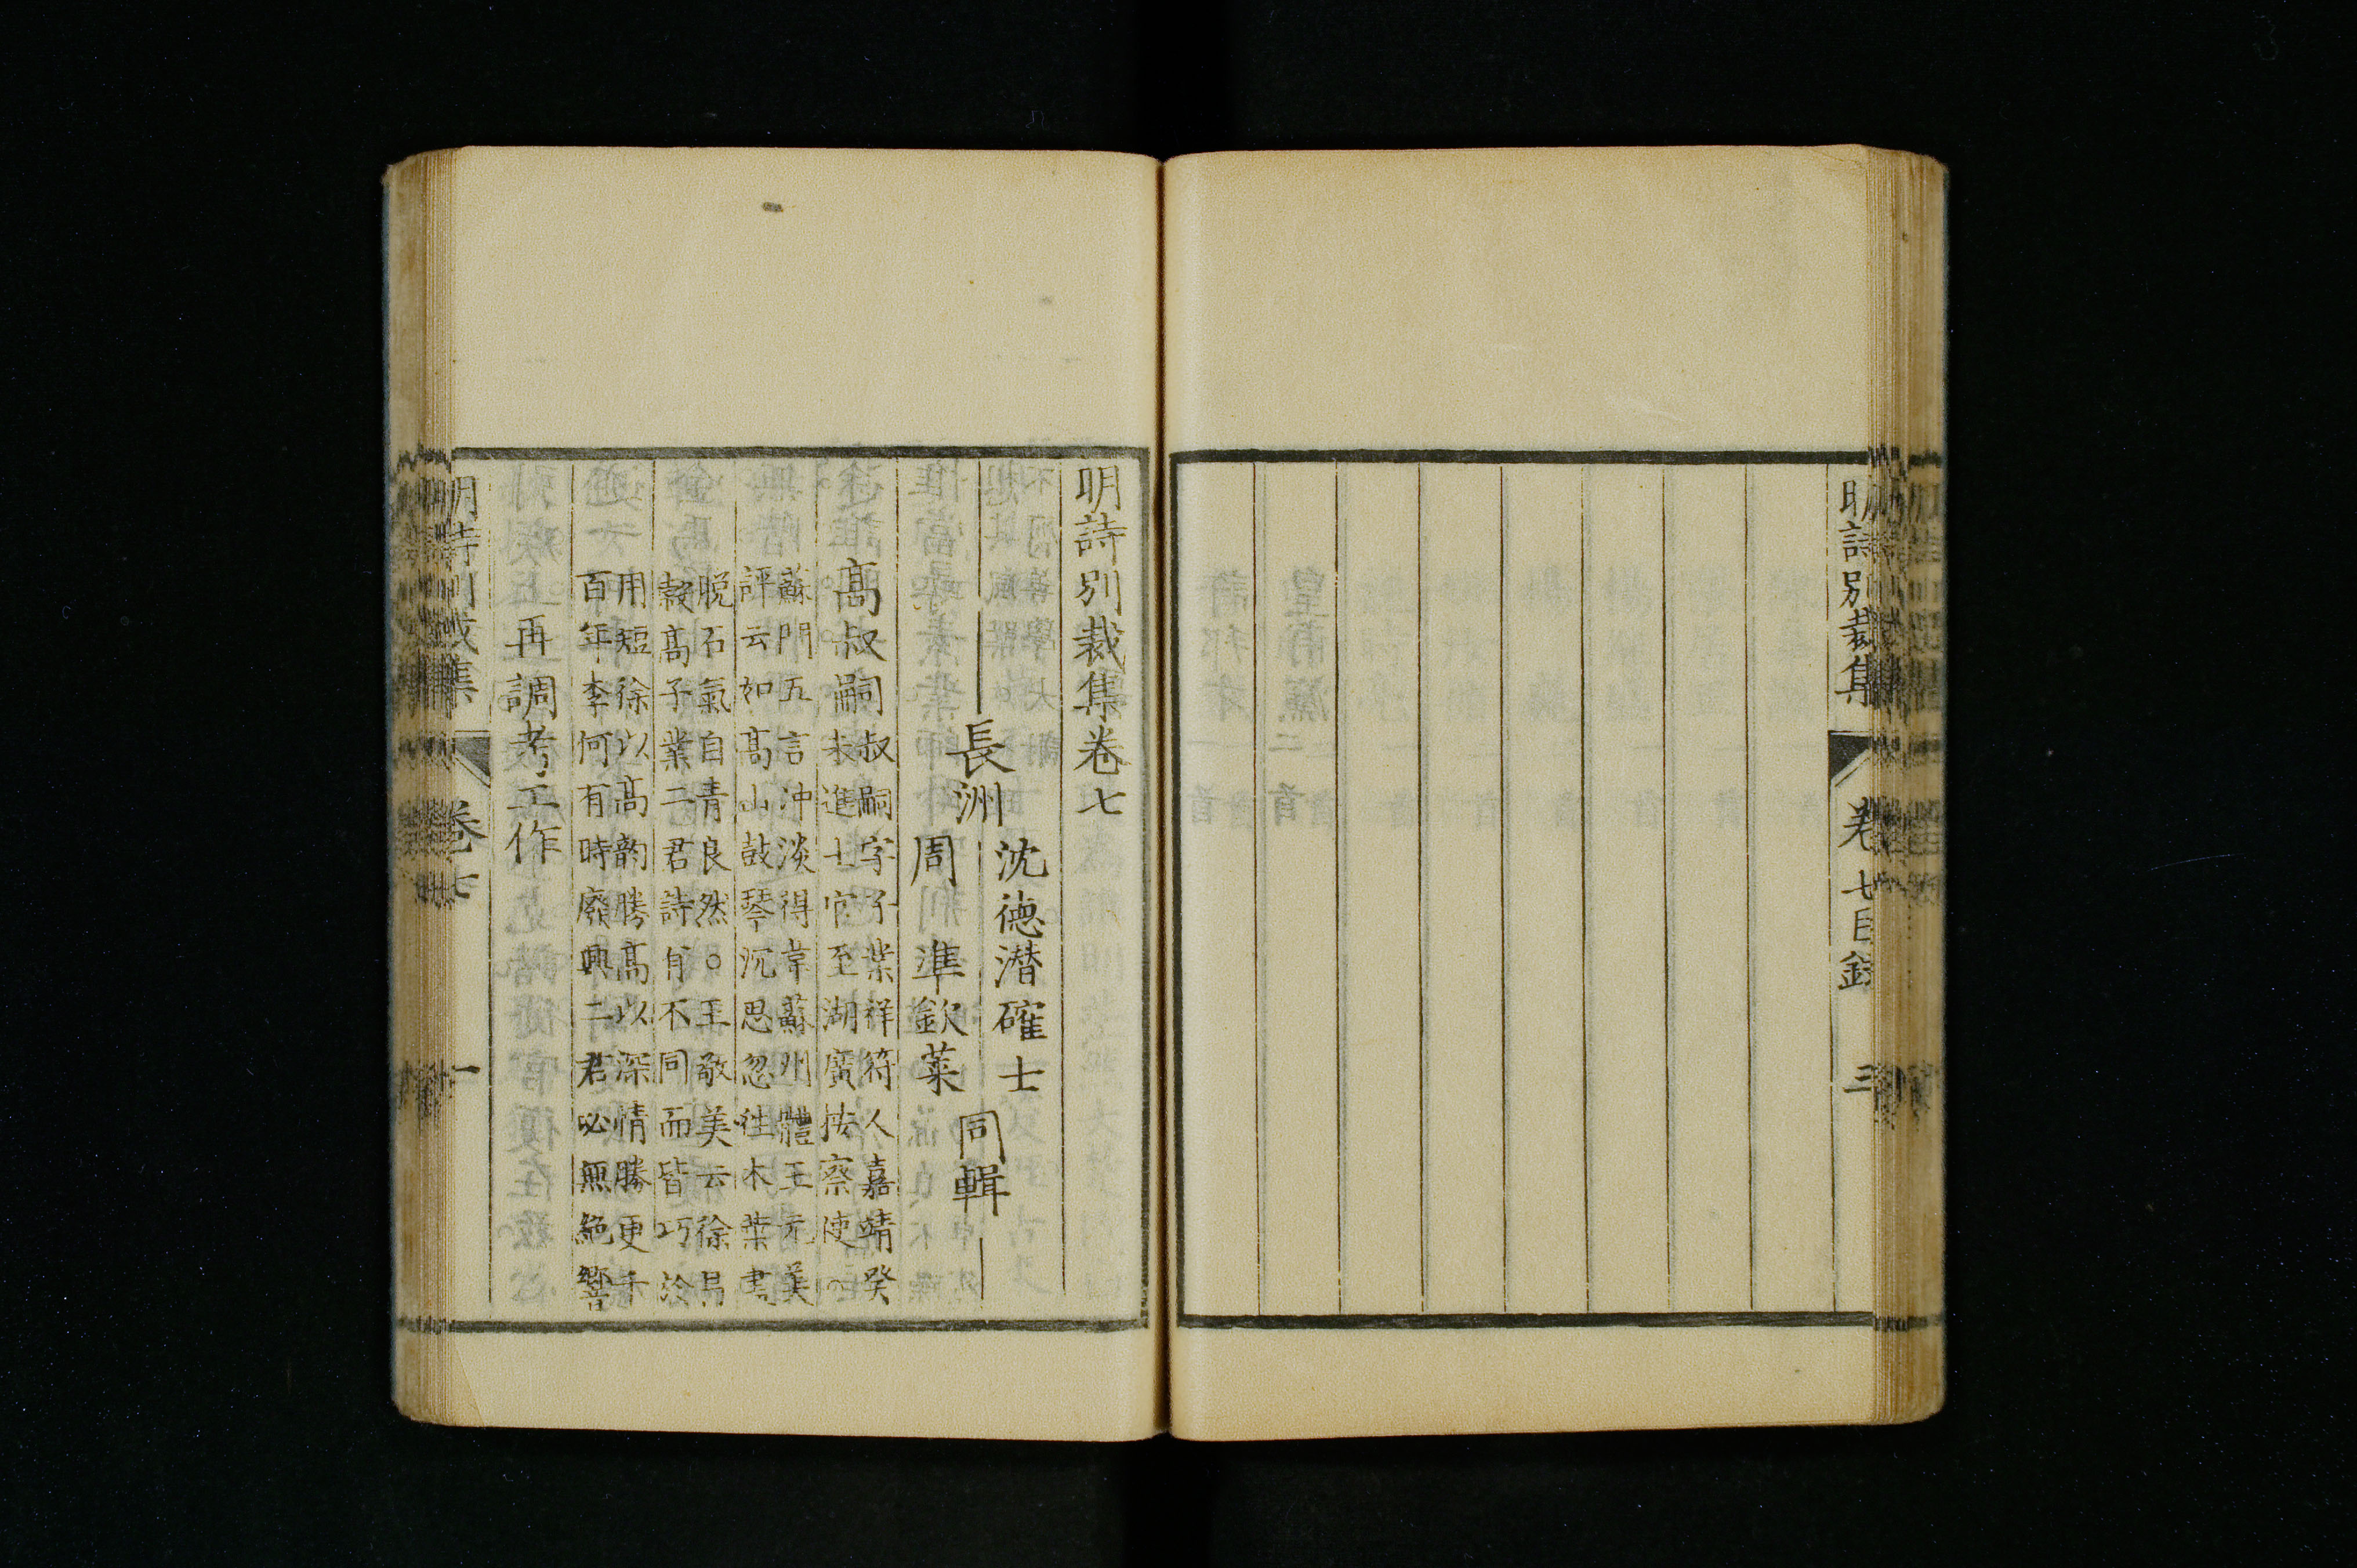 明詩別裁集
卷七目錄
三
明詩別裁集卷七
長洲
沈德潜確士
周準欽萊
同輯
高叔嗣
叔嗣字子業祥符人嘉靖癸
未進士官至湖廣按察使○
蘇門五言沖淡得韋蘇州體王元美
評云如高山鼓琴沉思忽往木葉盡
脱石氣自青良然○王敬美云徐昌
穀高子業二君詩有不同而皆巧於
用短徐以高韵勝高以深情勝更千
百年李何有時廢興二君必無絶響
再調考工作
明詩別裁集
卷七
一